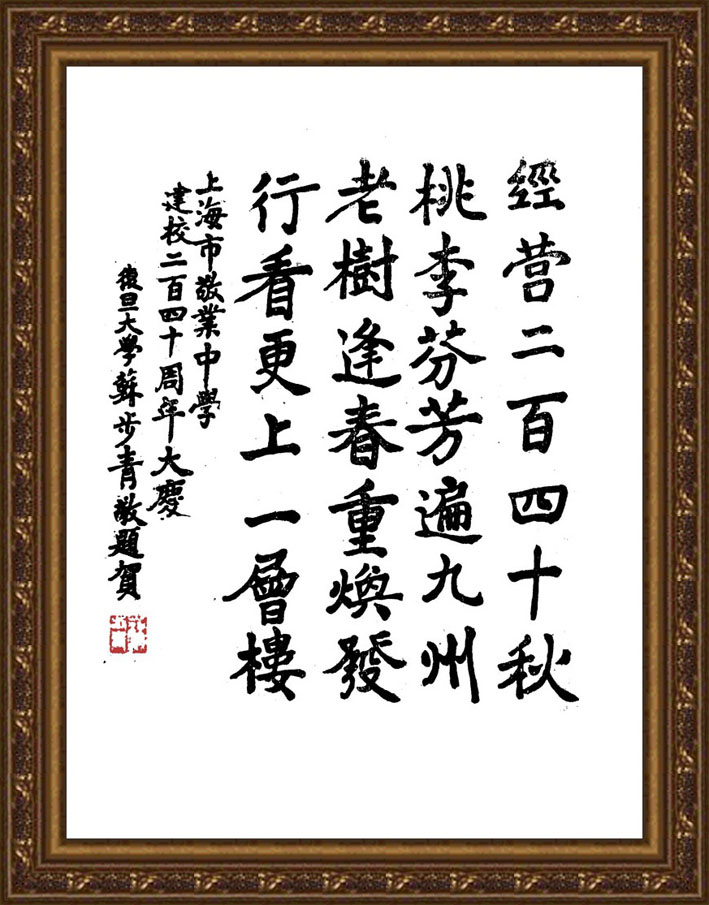 經营二百四十秋
桃李芬芳遍九州
老樹逢春重煥發
行看更上一層樓
上海市敬業中學
建校二百四十周年大慶
復旦大學蘇步青敬題賀